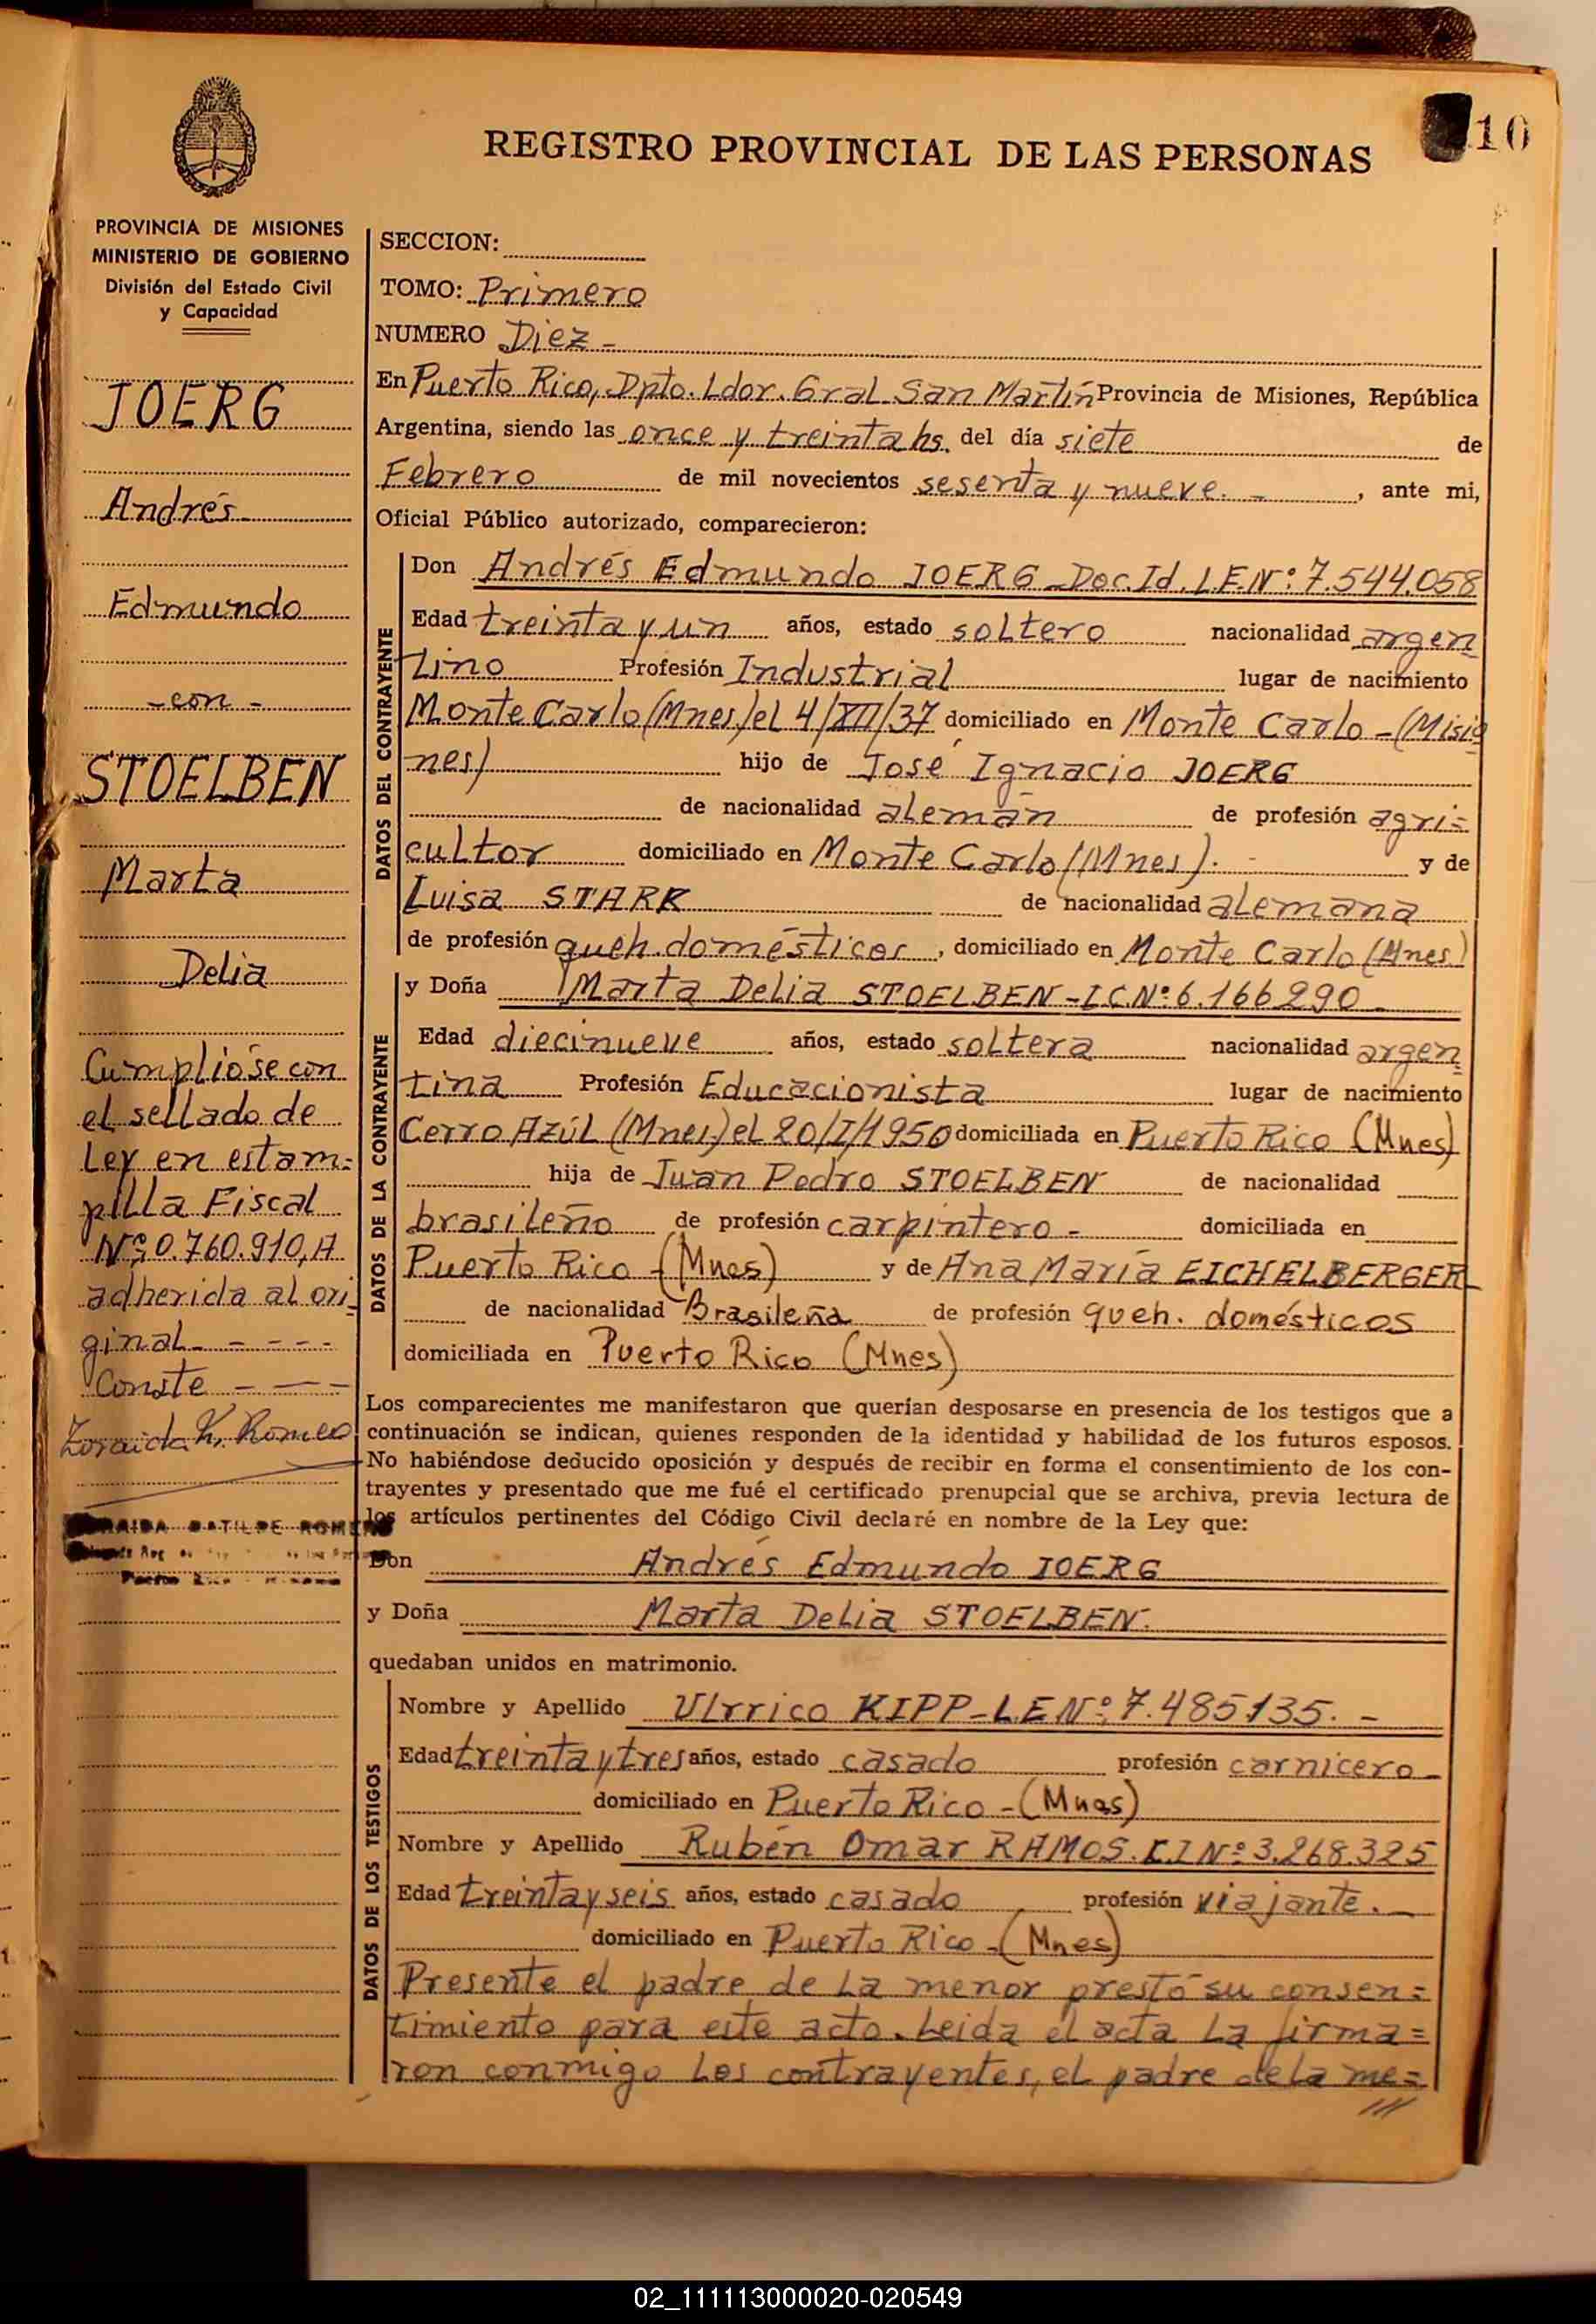 10
REGISTRO PROVINCIAL DE LAS PERSONAS
PROVINCIA DE MISIONES
MINISTERIO DE GOBIERNO
División del Estado Civil
y Capacidad
JOERG
Andrés
Edmundo
-con-
STOELBEN
Marta
Delia
Cumplióse con
el sellado de
Ley en estam=
pilla Fiscal
Nº 0.760.910,A
adherida al ori
ginal - - - -
Conste - - -
Zoraida K. Romeo
SECCION:
TOMO: Primero
NUMERO Diez -
En Puerto Rico, Dpto. Ldor. Gral. San Martín Provincia de Misiones, República
Argentina, siendo las once y treinta hs. del día siete de
Febrero de mil novecientos sesenta y nueve. - , ante mi,
Oficial Público autorizado, comparecieron:
DATOS DEL CONTRAYENTE
Don Andrés Edmundo JOERG - Doc. Id. L.E.Nº: 7.544.058
Edad treinta y un años, estado soltero nacionalidad argen
tino Profesión Industrial lugar de nacimiento
Monte Carlo (Mnes.) el 4/XII/37 domiciliado en Monte Carlo - (Misio
nes) hijo de José Ignacio JOERG
de nacionalidad alemán de profesión agri=
cultor domiciliado en Monte Carlo (Mnes). - y de
Luisa STARK de nacionalidad alemana
de profesión queh. domésticos , domiciliado en Monte Carlo (Mnes)
DATOS DE LA CONTRAYENTE
y Doña Marta Delia STOELBEN - L.C.Nº: 6.166290
Edad diecinueve años, estado soltera nacionalidad argen
tina Profesión Educacionista lugar de nacimiento
Cerro Azúl (Mnes) el 20/I/1950 domiciliada en Puerto Rico (Mnes)
hija de Juan Pedro STOELBEN de nacionalidad
brasileño de profesión carpintero - domiciliada en
Puerto Rico - (Mnes) y de Ana María EICHELBERGER
de nacionalidad Brasileña de profesión queh. domésticos
domiciliada en Puerto Rico (Mnes)
Los comparecientes me manifestaron que querían desposarse en presencia de los testigos que a
continuación se indican, quienes responden de la identidad y habilidad de los futuros esposos.
No habiéndose deducido oposición y después de recibir en forma el consentimiento de los con-
trayentes y presentado que me fué el certificado prenupcial que se archiva, previa lectura de
los artículos pertinentes del Código Civil declaré en nombre de la Ley que:
Don Andrés Edmundo JOERG
y Doña Marta Delia STOELBEN.
quedaban unidos en matrimonio.
DATOS DE LOS TESTIGOS
Nombre y Apellido Ulrrico KIPP - L.E Nº: 7.485135. -
Edad treinta y tres años, estado casado profesión carnicero -
domiciliado en Puerto Rico - (Mnes)
Nombre y Apellido Rubén Omar RAMOS. C.I Nº: 3.268.325
Edad treinta y seis años, estado casado profesión viajante. -
domiciliado en Puerto Rico - (Mnes)
Presente el padre de la menor prestó su consen=
timiento para este acto. Leida el acta la firma=
ron conmigo los contrayentes, el padre de la me=
///
02_111113000020-020549